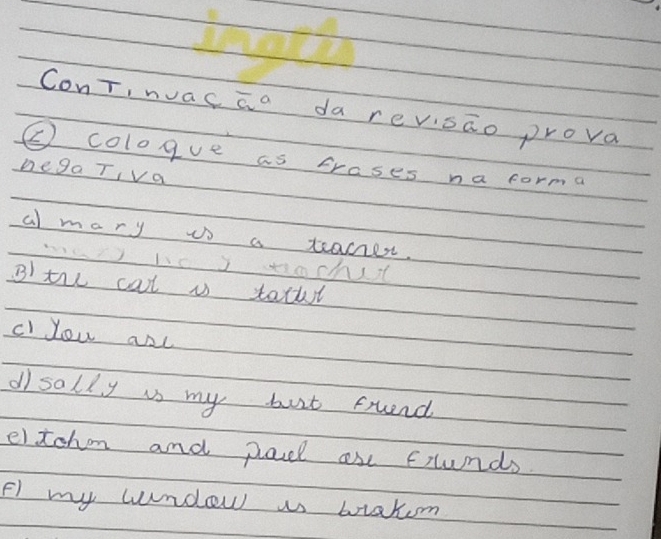 inglês
Continuação da revisão prova
② coloque as frases na forma
negativa
a) mary is a teacher.
B) the cat is
c) You are
d) sally is my best friend
e) Tohm and paul are friends.
F) my window is brakem